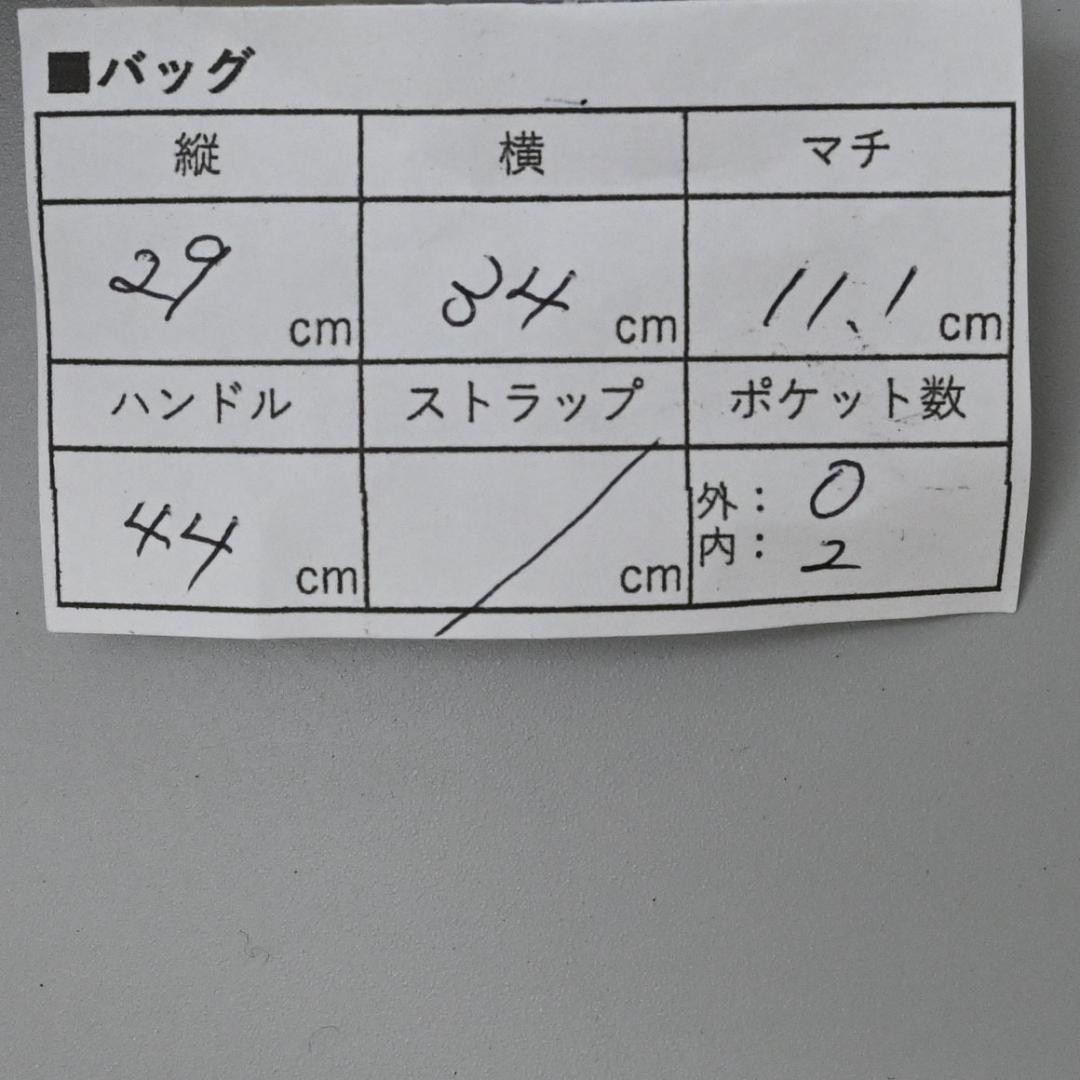 ■バッグ
縦 横 マチ
29 cm 34 cm 11.1 cm
ハンドル ストラップ ポケット数
44 cm / cm 外: 0
内: 2